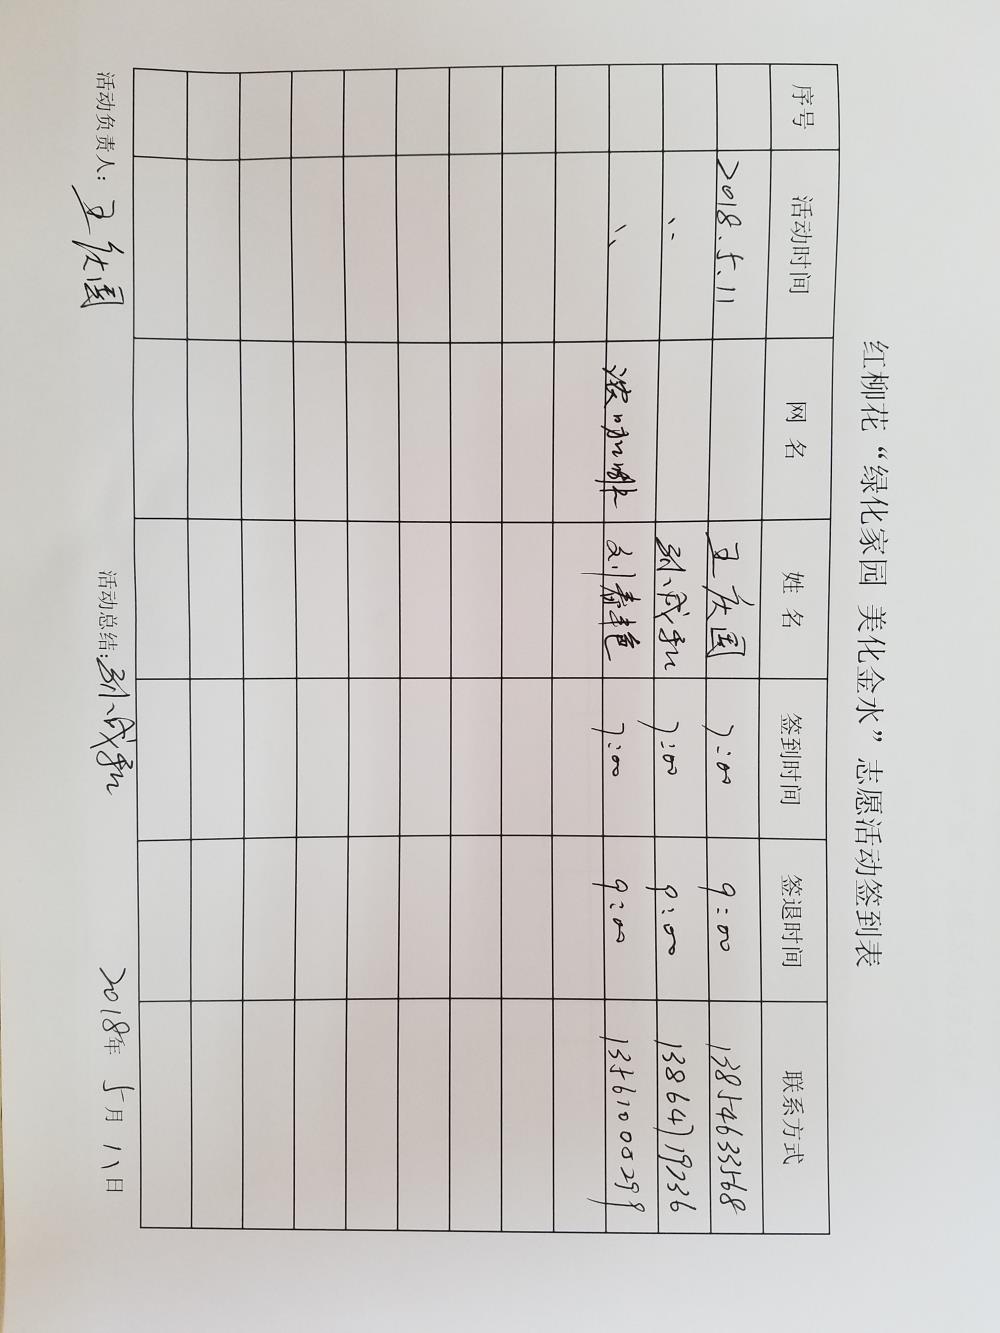 红柳花“绿化家园 美化金水”志愿活动签到表
序号 活动时间 网 名 姓 名 签到时间 签退时间 联系方式
2018.5.11 王庆国 7:00 9:00 13854633568
〃 7:00 9:00 13864719236
〃 刘春艳 7:00 9:00 13561000299
活动负责人: 王庆国 活动总结: 2018年 5月 11日